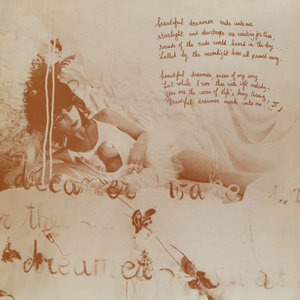 beautiful dreamer wake unto me
starlight and dewdrops are waiting for thee
sounds of the rude world heard in the day
lulled by the moonlight have all passed away
beautiful dreamer, queen of my song
list while I woo thee with soft melody
gone are the cares of life's busy throng
beautiful dreamer awake unto me!
dreamer wake
dreamer